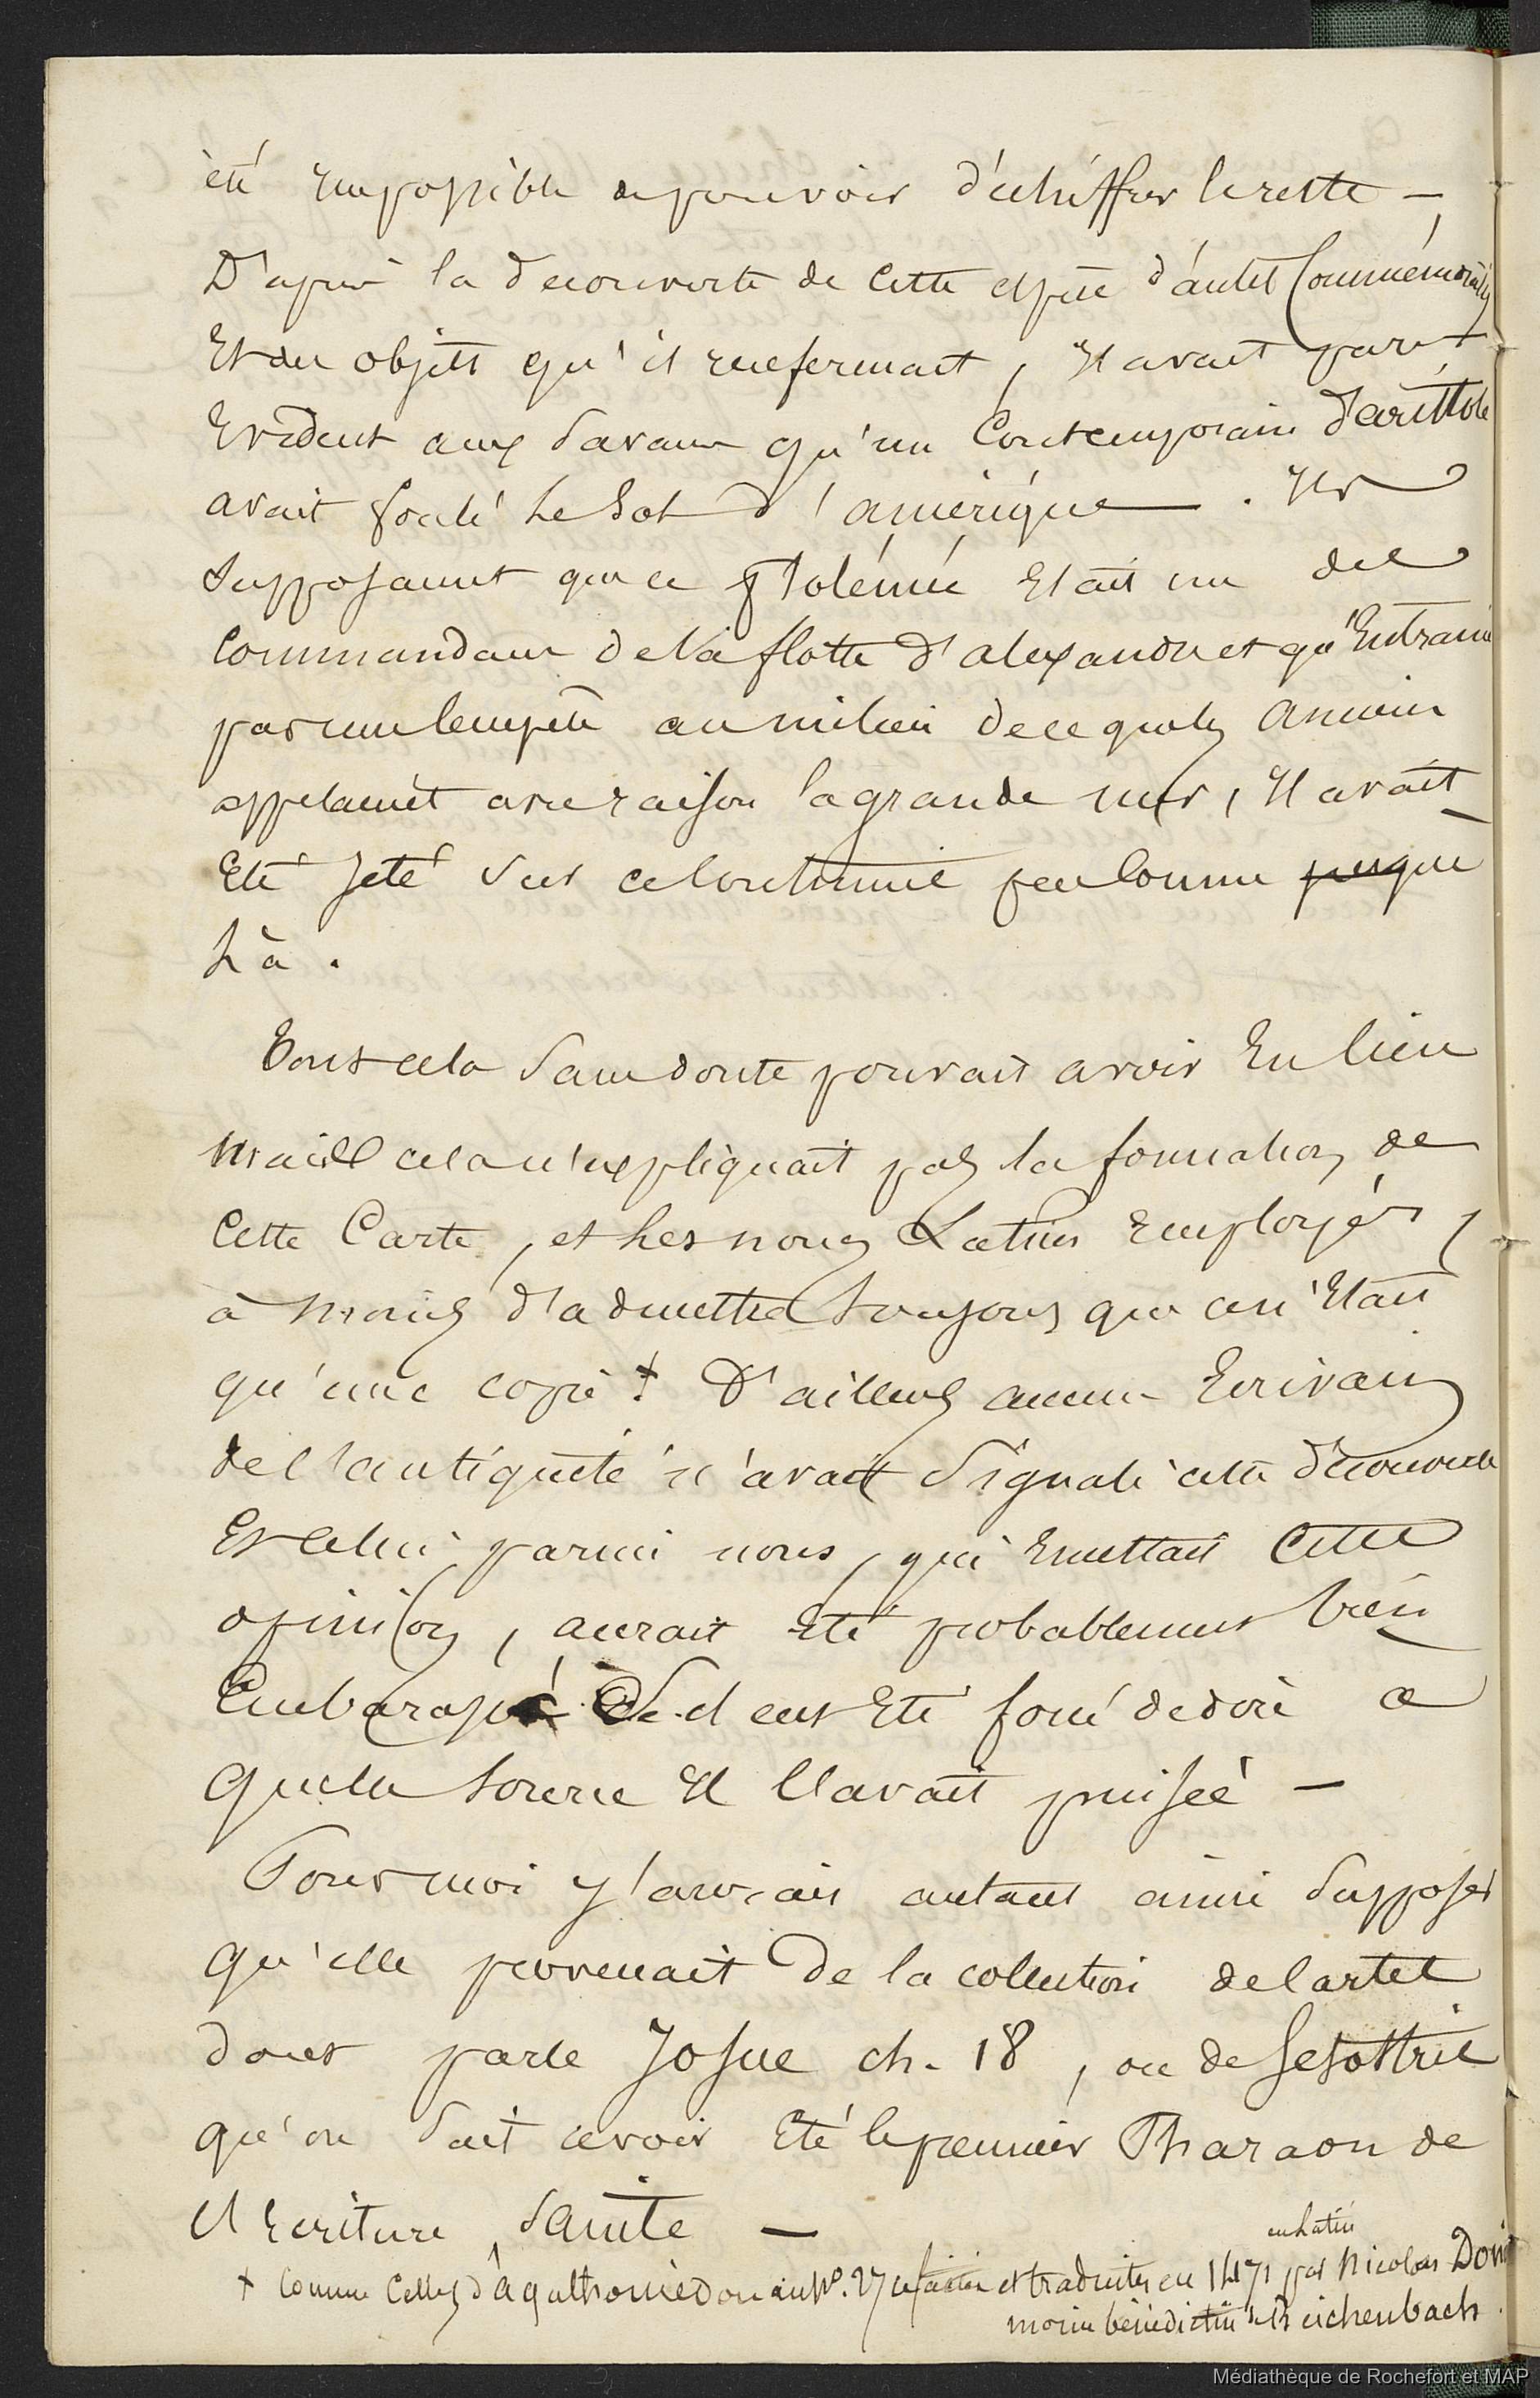 èté Impossible de pouvoir d'échiffrer le reste —
D'après la decouverte de Cette espèce d'autel Commémoratif
Et des objets qu'il renfermait, Il avait paru
Evident aux Savans qu'un Contemporain d'aristote
avait foulé le Sol d'amérique —. Ils
Supposaient que ce Ptolémée Etait un des
Commandans de la flotte d'alexandre et qu'Entrainé
par une tempête au milieu de ce que les anciens
appelaient avec raison la grande mer, Il avait
Eté jeté Sur ce Continent peu Connu jusque
Là.
Tout cela Sans doute pouvait avoir Eu lieu
mais cela n'expliquait pas la formation de
Cette Carte, et les noms Latins Employés,
à moins d'admettre toujours que ce n'Etait
qu'une copie † D'ailleurs aucun Ecrivain
de l'antiquité n'avait Signalé cette découverte
Et Celui parmi nous, qui Emettait Cette
opinion, aurait Eté probablement bien
Embarassé S'il eut Eté forcé de dire a
quelle Source Il l'avait puisée —
Pour moi j'aurais autant aimé Supposer
qu'elle provenait de la collection de cartes
dont parle Josue ch. 18, ou de Sesostris
qu'on Sait avoir Eté le premier Pharaon de
l'Ecriture Sainte —
en Latin
† Comme Celles d'Agathomédon au No. 27 ce facsim et traduites en 1471 par Nicolas Donis
moine bénédictin de Reichenbach.
Médiathèque de Rochefort et MAP